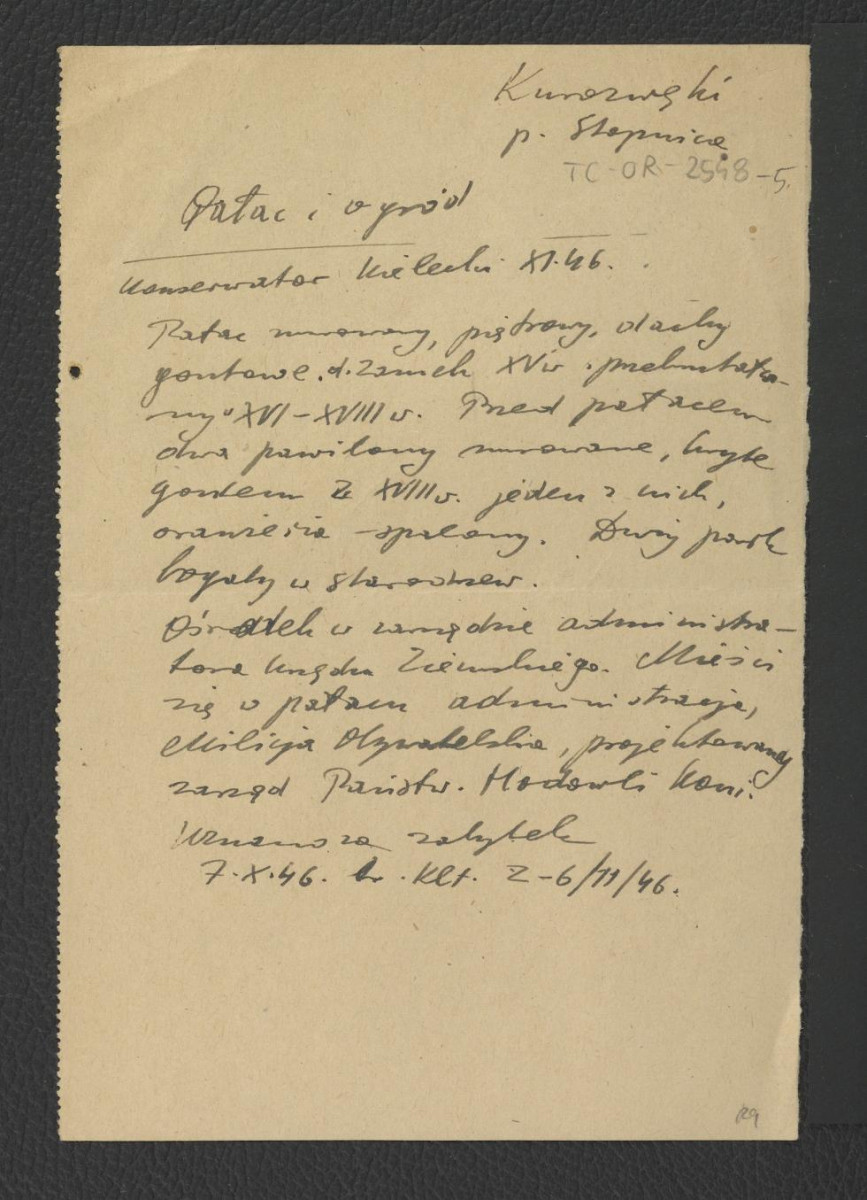 Kurozwęki
p. Stopnica
TC-OR-2548-5.
Pałac i ogród
Konserwator Kielecki XI.46.
Pałac murowany, piętrowy, dachy
gontowe. d. zamek XV w. przebudowa-
ny XVI-XVIII w. Przed pałacem
dwa pawilony murowane, kryte
gontem z XVIII w. jeden z nich,
oranżeria - spalony. Duży park
bogaty w starodrzew.
Ośrodek w zarządzie administra-
tora Urzędu Ziemskiego. Mieści
się w pałacu administracja,
Milicja Obywatelska, projektowany
zarząd Państw. Hodowli Koni.
Uznano za zabytek
7.X.46. Klt. 2-6/11/46.
129